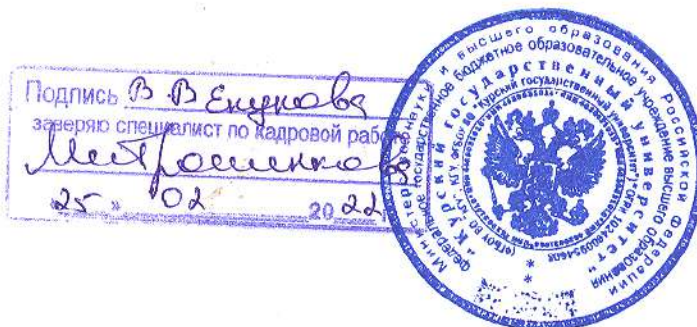 Подпись В В Енукова
заверяю специалист по кадровой работе
Митрошенкова
"25" 02 2022
Министерство науки и высшего образования Российской Федерации
федеральное государственное бюджетное образовательное учреждение высшего образования
"Курский государственный университет"
(ФГБОУ ВО "КГУ", КГУ, ФГБОУ ВО "Курский государственный университет")